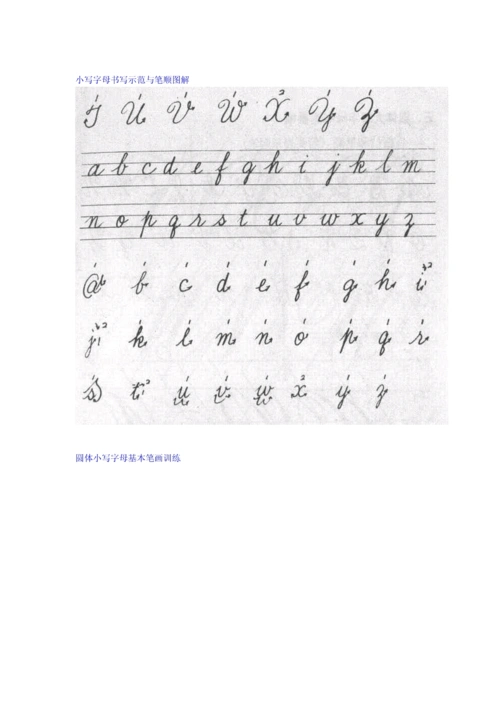 小写字母书写示范与笔顺图解
T U V W X Y Z
a b c d e f g h i j k l m
n o p q r s t u v w x y z
a b c d e f g h i
j k l m n o p q r
s t u v w x y z
圆体小写字母基本笔画训练